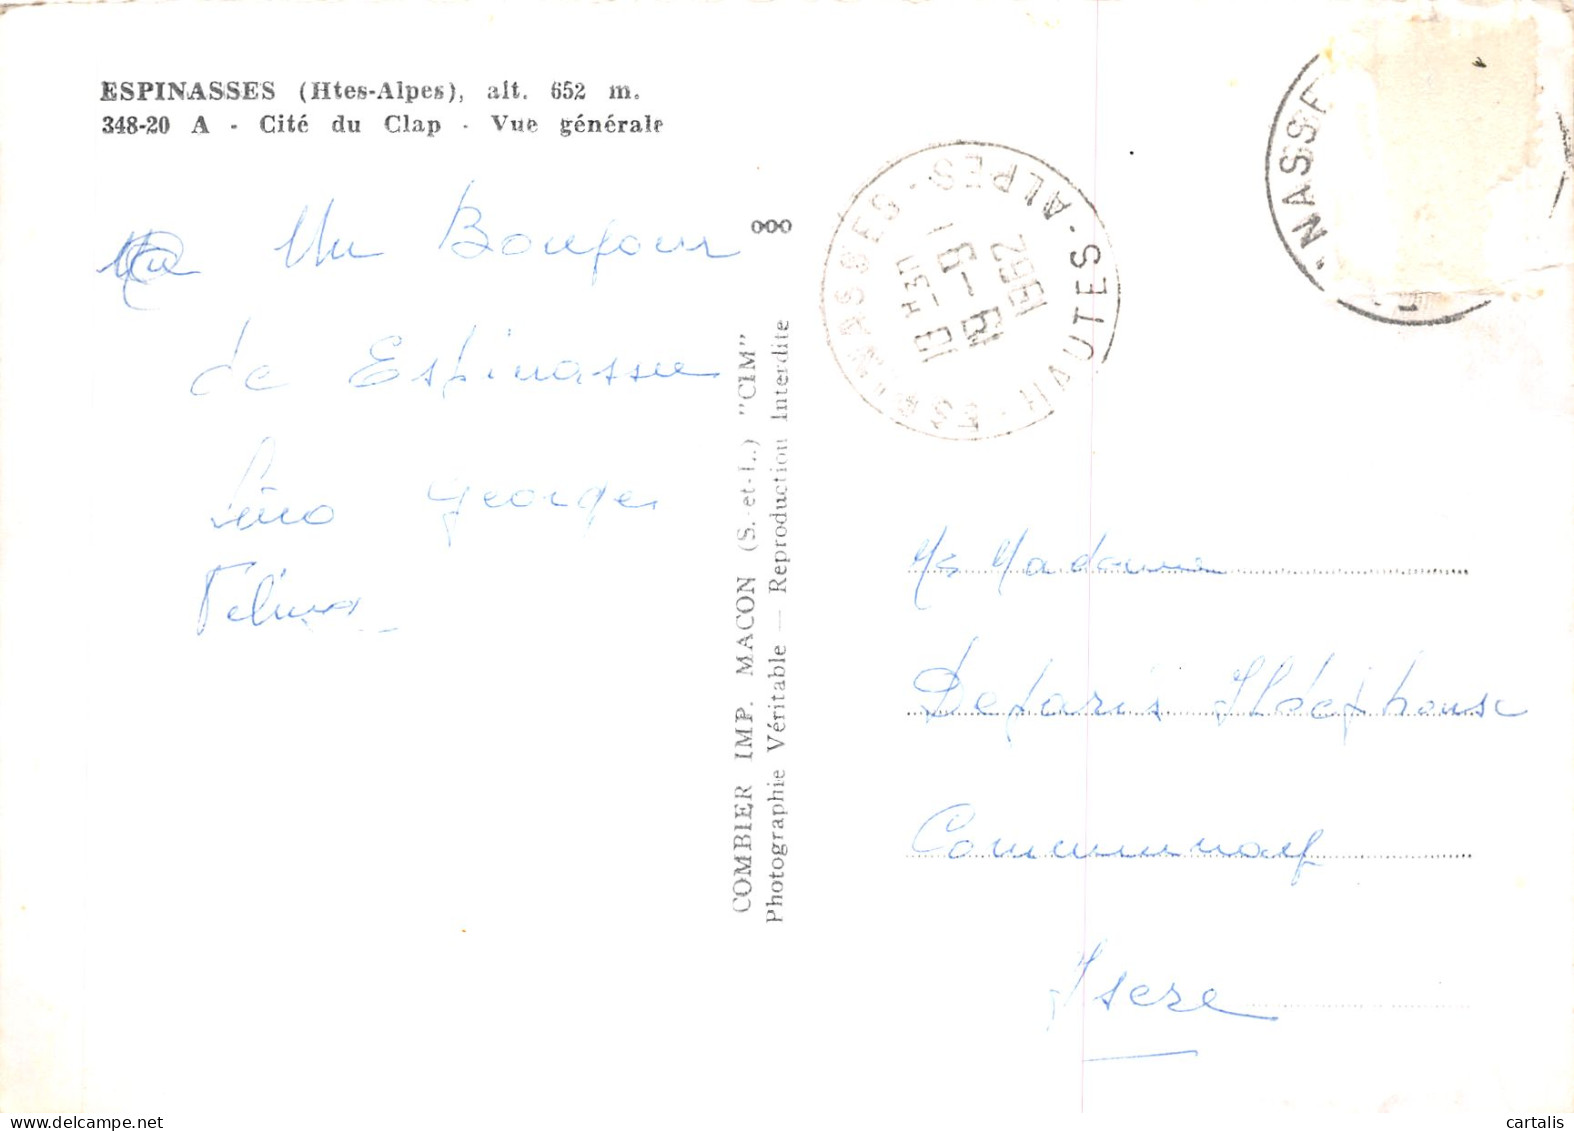 ESPINASSES (Htes-Alpes), alt. 652 m.
348-20 A - Cité du Clap - Vue générale
Un Bonjour
de Espinasse
Lino Georges
Felina
ooo
COMBIER IMP. MACON (S.-et-L.) "CIM"
Photographie Véritable — Reproduction Interdite
ESPINASSES - HAUTES-ALPES
19-9
1962
NASSE
Mr Madame
Deparis Ildephonse
Communay
Isere
cartalis
www.delcampe.net